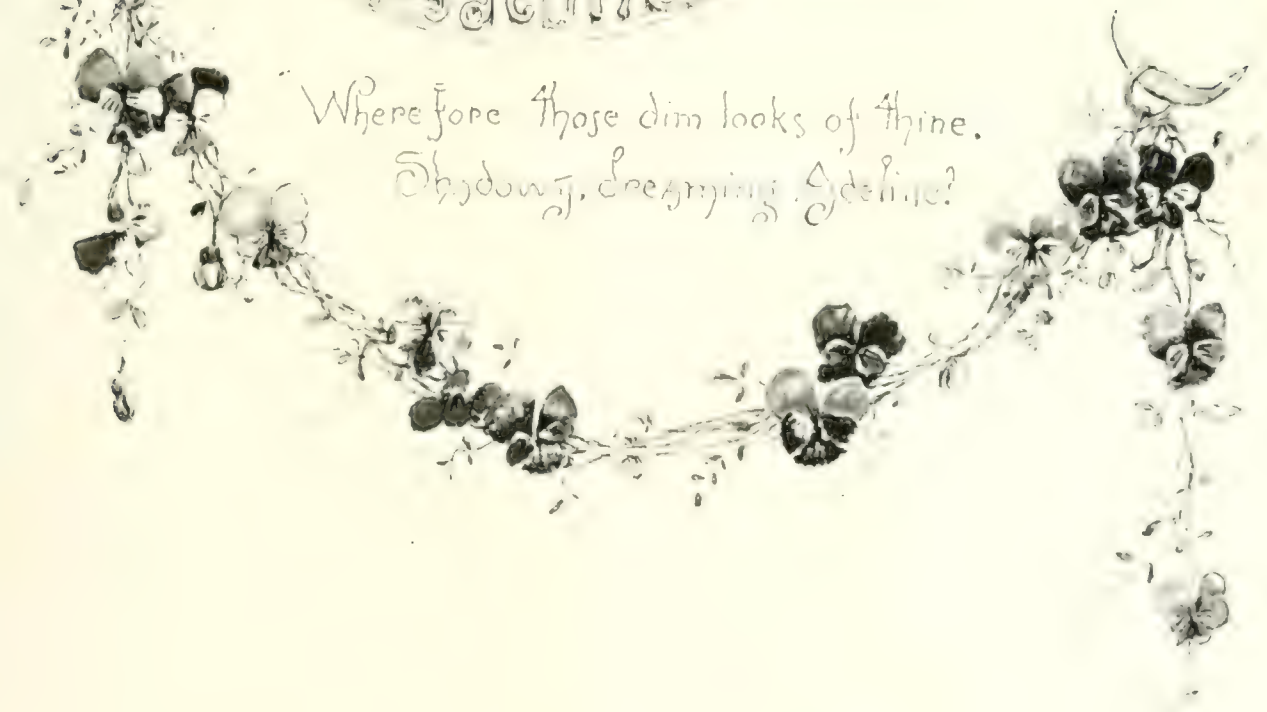 Wherefore those dim looks of thine.
Shadowy, dreaming Adeline?